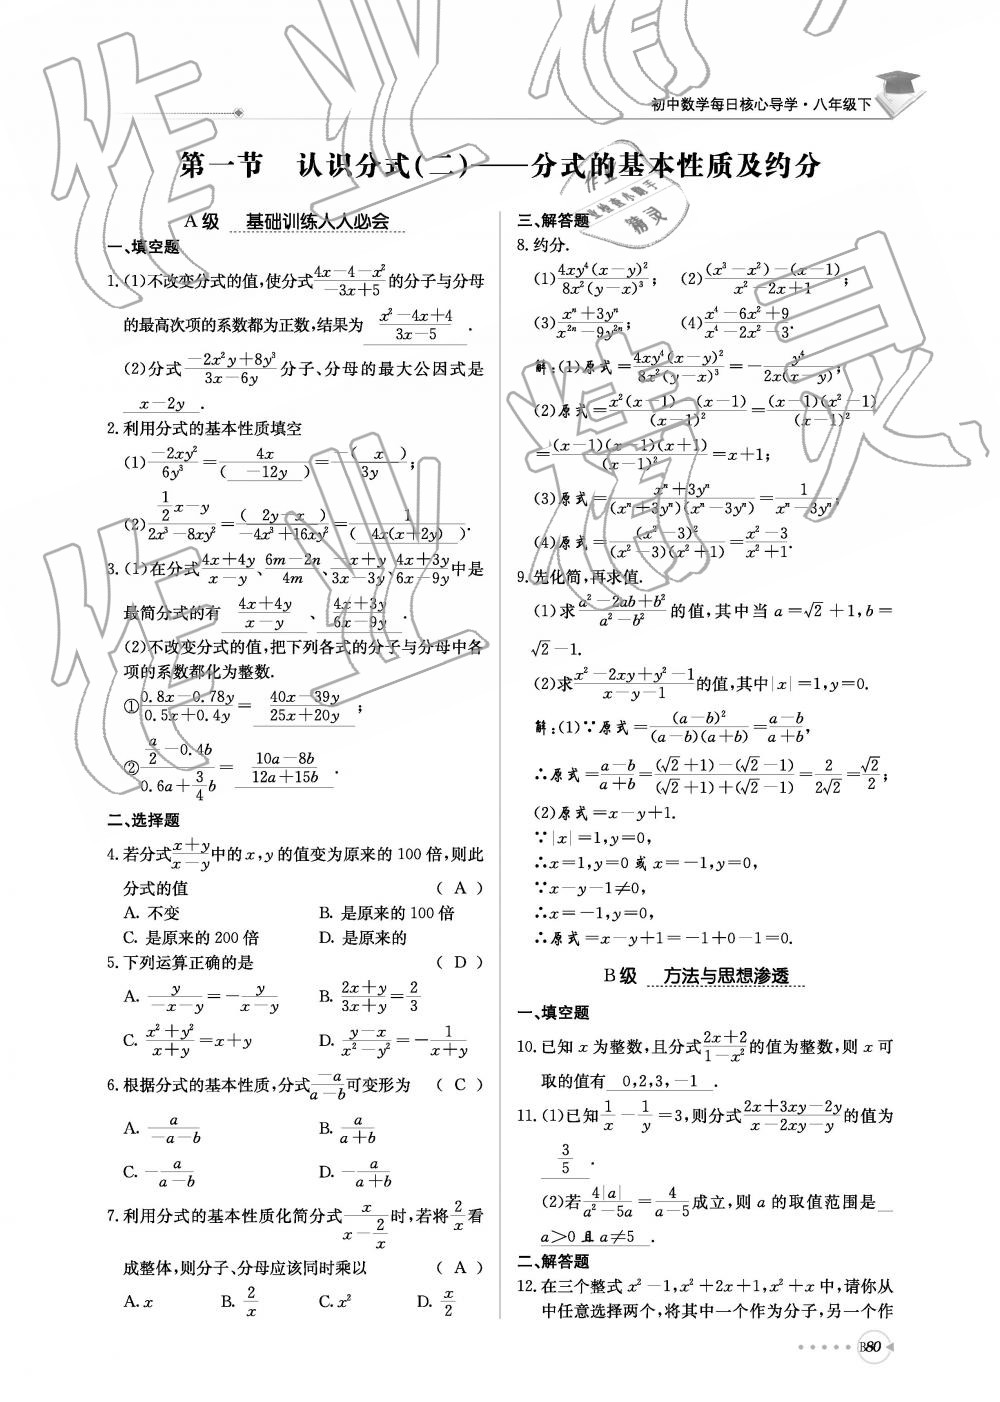 初中数学每日核心导学·八年级下
第一节　认识分式(二)——分式的基本性质及约分
A级　基础训练人人必会
一、填空题
1.(1)不改变分式的值,使分式(4x-4-x²)/(-3x+5)的分子与分母
的最高次项的系数都为正数,结果为 (x²-4x+4)/(3x-5) .
(2)分式 (-2x²y+8y³)/(3x-6y) 分子、分母的最大公因式是
x-2y .
2.利用分式的基本性质填空
(1)(-2xy²)/(6y³)=4x/( -12y )=-( x )/3y;
(2)(1/2 x-y)/(2x³-8xy²)=( 2y-x )/(-4x³+16xy²)=1/( 4x(x+2y) ).
3.(1)在分式(4x+4y)/(x-y)、(6m-2n)/4m、(-x+y)/(3x-3y)、(4x+3y)/(6x-9y)中是
最简分式的有 (4x+4y)/(x-y) 、 (4x+3y)/(6x-9y) .
(2)不改变分式的值,把下列各式的分子与分母中各
项的系数都化为整数.
①(0.8x-0.78y)/(0.5x+0.4y)= (40x-39y)/(25x+20y) ;
②(a/2-0.4b)/(0.6a+3/4 b)= (10a-8b)/(12a+15b) .
二、选择题
4.若分式(x+y)/(x-y)中的x,y的值变为原来的100倍,则此
分式的值　( A )
A. 不变　B. 是原来的100倍
C. 是原来的200倍　D. 是原来的
5.下列运算正确的是　( D )
A. y/(-x-y)=-y/(x-y)　B. (2x+y)/(3x+y)=2/3
C. (x²+y²)/(x+y)=x+y　D. (y-x)/(x²-y²)=-1/(x+y)
6.根据分式的基本性质,分式-a/(a-b)可变形为　( C )
A. a/(-a-b)　B. a/(a+b)
C. -a/(a-b)　D. -a/(a+b)
7.利用分式的基本性质化简分式 x/(x-2/x) 时,若将2/x看
成整体,则分子、分母应该同时乘以　( A )
A.x　B. 2/x　C.x²　D. x/2
三、解答题
8.约分.
(1)4xy⁴(x-y)²/8x²(y-x)³;　(2)((x³-x²)-(x-1))/(x²-2x+1);
(3)(xⁿ+3yⁿ)/(x²ⁿ-9y²ⁿ);　(4)(x⁴-6x²+9)/(x⁴-2x²-3).
解:(1)原式=4xy⁴(x-y)²/8x²(y-x)³=-y⁴/2x(x-y);
(2)原式=(x²(x-1)-(x-1))/(x-1)²=(x-1)(x²-1)/(x-1)²
=(x-1)(x-1)(x+1)/(x-1)²=x+1;
(3)原式=(xⁿ+3yⁿ)/(xⁿ+3yⁿ)(xⁿ-3yⁿ)=1/(xⁿ-3yⁿ);
(4)原式=(x²-3)²/(x²-3)(x²+1)=(x²-3)/(x²+1).
9.先化简,再求值.
(1)求(a²-2ab+b²)/(a²-b²)的值,其中当a=√2+1,b=
√2-1.
(2)求(x²-2xy+y²-1)/(x-y-1)的值,其中|x|=1,y=0.
解:(1)∵原式=(a-b)²/(a-b)(a+b)=(a-b)/(a+b),
∴原式=(a-b)/(a+b)=((√2+1)-(√2-1))/((√2+1)+(√2-1))=2/2√2=√2/2;
(2)原式=x-y+1.
∵|x|=1,y=0,
∴x=1,y=0或x=-1,y=0,
∵x-y-1≠0,
∴x=-1,y=0,
∴原式=x-y+1=-1+0-1=0.
B级　方法与思想渗透
一、填空题
10.已知x为整数,且分式(2x+2)/(1-x²)的值为整数,则x可
取的值有 0,2,3,-1 .
11.(1)已知1/x-1/y=3,则分式(2x+3xy-2y)/(x-2xy-y)的值为
3/5 .
(2)若4|a|/(a²-5a)=4/(a-5)成立,则a的取值范围是
a>0且a≠5 .
二、解答题
12.在三个整式x²-1,x²+2x+1,x²+x中,请你从
中任意选择两个,将其中一个作为分子,另一个作
B80
作业精灵
作业精灵
精灵